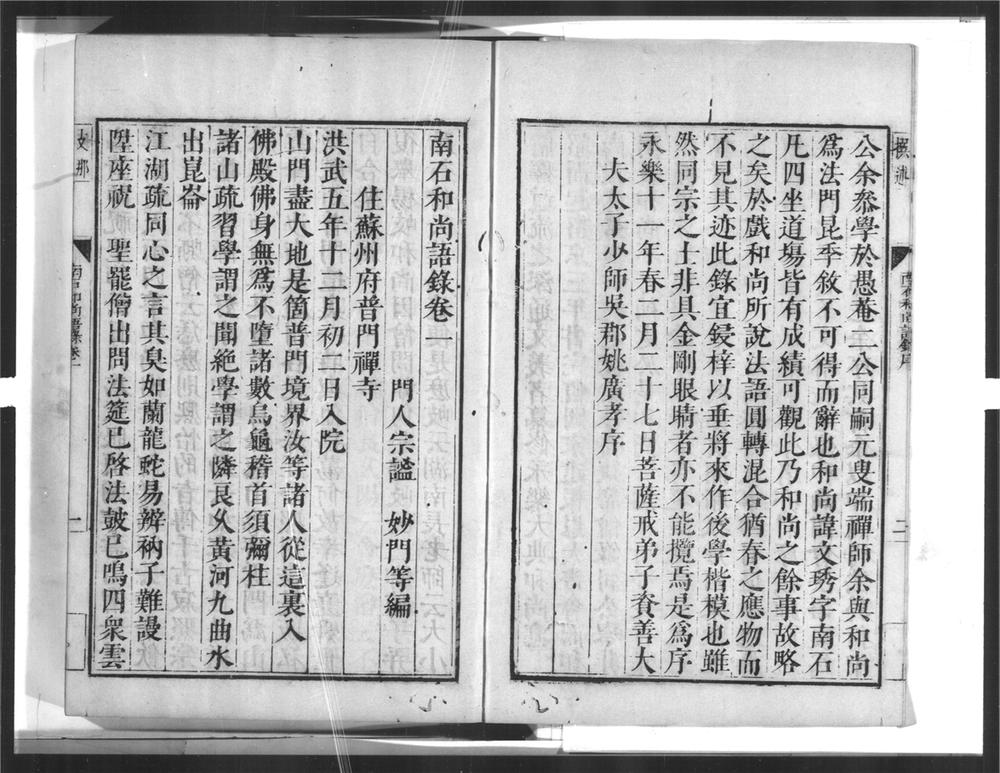 公余叅學於愚菴二公同嗣元叟端禪師余與和尚
爲法門昆季敘不可得而辭也和尚諱文琇字南石
凡四坐道場皆有成績可觀此乃和尚之餘事故略
之矣於戲和尚所說法語圓轉混合猶春之應物而
不見其迹此錄宜鋟梓以垂將來作後學楷模也雖
然同宗之士非具金剛眼睛者亦不能攬焉是爲序
永樂十一年春二月二十七日菩薩戒弟子資善大
夫太子少師吳郡姚廣孝序
南石和尚語錄卷一
門人宗謐 妙門等編
住蘇州府普門禪寺
洪武五年十二月初二日入院
山門盡大地是箇普門境界汝等諸人從這裏入
佛殿佛身無爲不墮諸數烏龜稽首須彌柱
諸山疏習學謂之聞絕學謂之隣良久黃河九曲水
出崑崙
江湖疏同心之言其臭如蘭龍蛇易辨衲子難謾
陞座祝 聖罷僧出問法筵已啓法鼓已鳴四衆雲